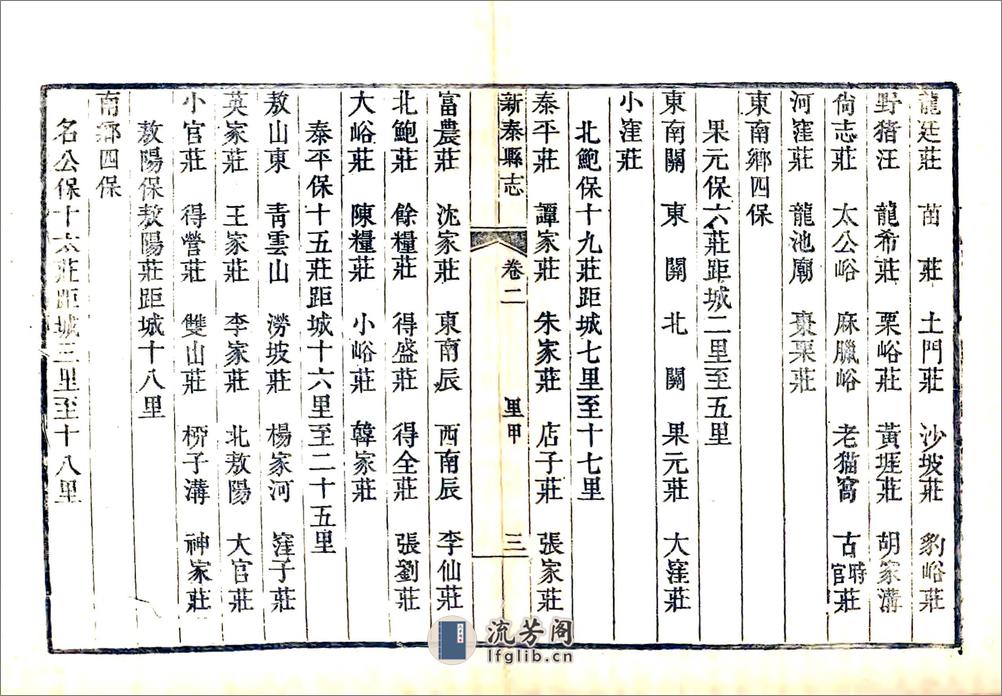 龍廷莊　苗　莊　土門莊　沙坡莊　豹峪莊
野猪汪　龍希莊　栗峪莊　黃堐莊　胡家溝
尙志莊　太公峪　麻臘峪　老猫窩　古時官莊
河窪莊　龍池廟　棗栗莊
東南鄉四保
果元保六莊距城二里至五里
東南關　東　關　北　關　果元莊　大窪莊
小窪莊
北鮑保十九莊距城七里至十七里
泰平莊　譚家莊　朱家莊　店子莊　張家莊
新泰縣志　卷二　里甲　三
富農莊　沈家莊　東南辰　西南辰　李仙莊
北鮑莊　餘糧莊　得盛莊　得全莊　張劉莊
大峪莊　陳糧莊　小峪莊　韓家莊
泰平保十五莊距城十六里至二十五里
敖山東　靑雲山　澇坡莊　楊家河　窪子莊
英家莊　王家莊　李家莊　北敖陽　大官莊
小官莊　得營莊　雙山莊　子溝　神家莊
敖陽保敖陽莊距城十八里
南鄉四保
名公保十六莊距城三里至十八里
流芳阁
lfglib.cn